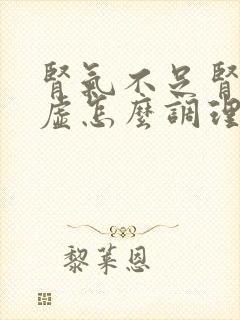 腎氣不足腎
虛怎麼調理
黎萊恩